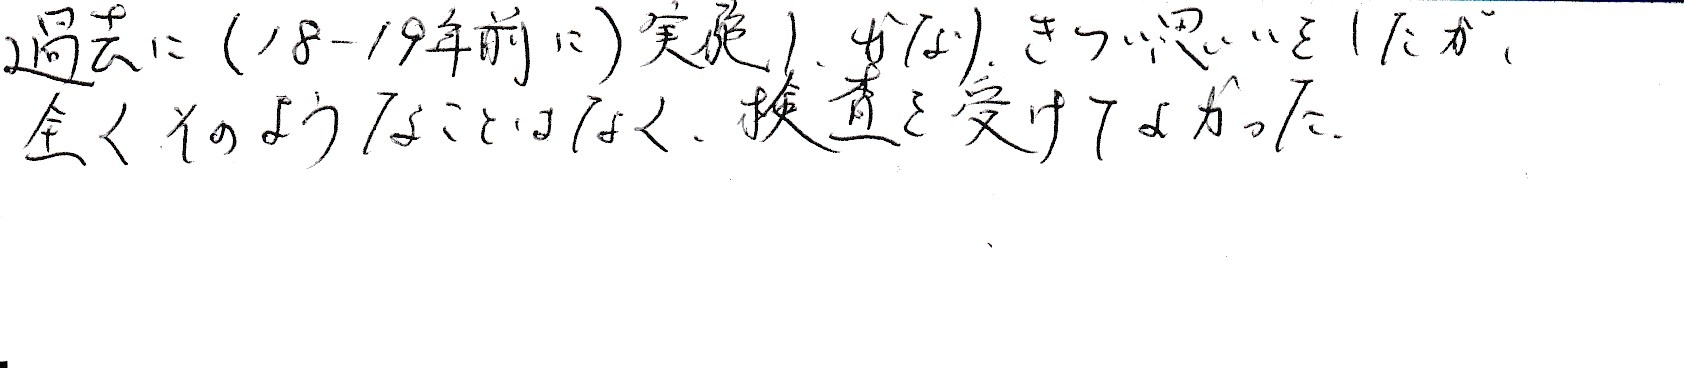 過去に(18-19年前に)実施し、かなり、きつい思いをしたが、
全くそのようなことはなく、検査を受けてよかった.